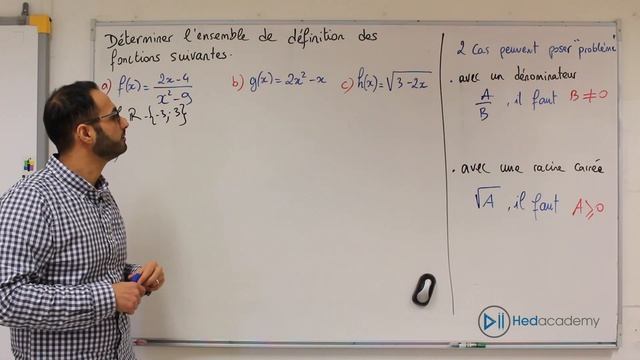 Déterminer l'ensemble de définition des
fonctions suivantes.
a) f(x) = (2x-4)/(x²-9)
R-{-3;3}
b) g(x) = 2x²-x
c) h(x) = √(3-2x)
2 cas peuvent poser "problème"
. avec un dénominateur
A/B , il faut B≠0
. avec une racine carrée
√A , il faut A⩾0
Hedacademy